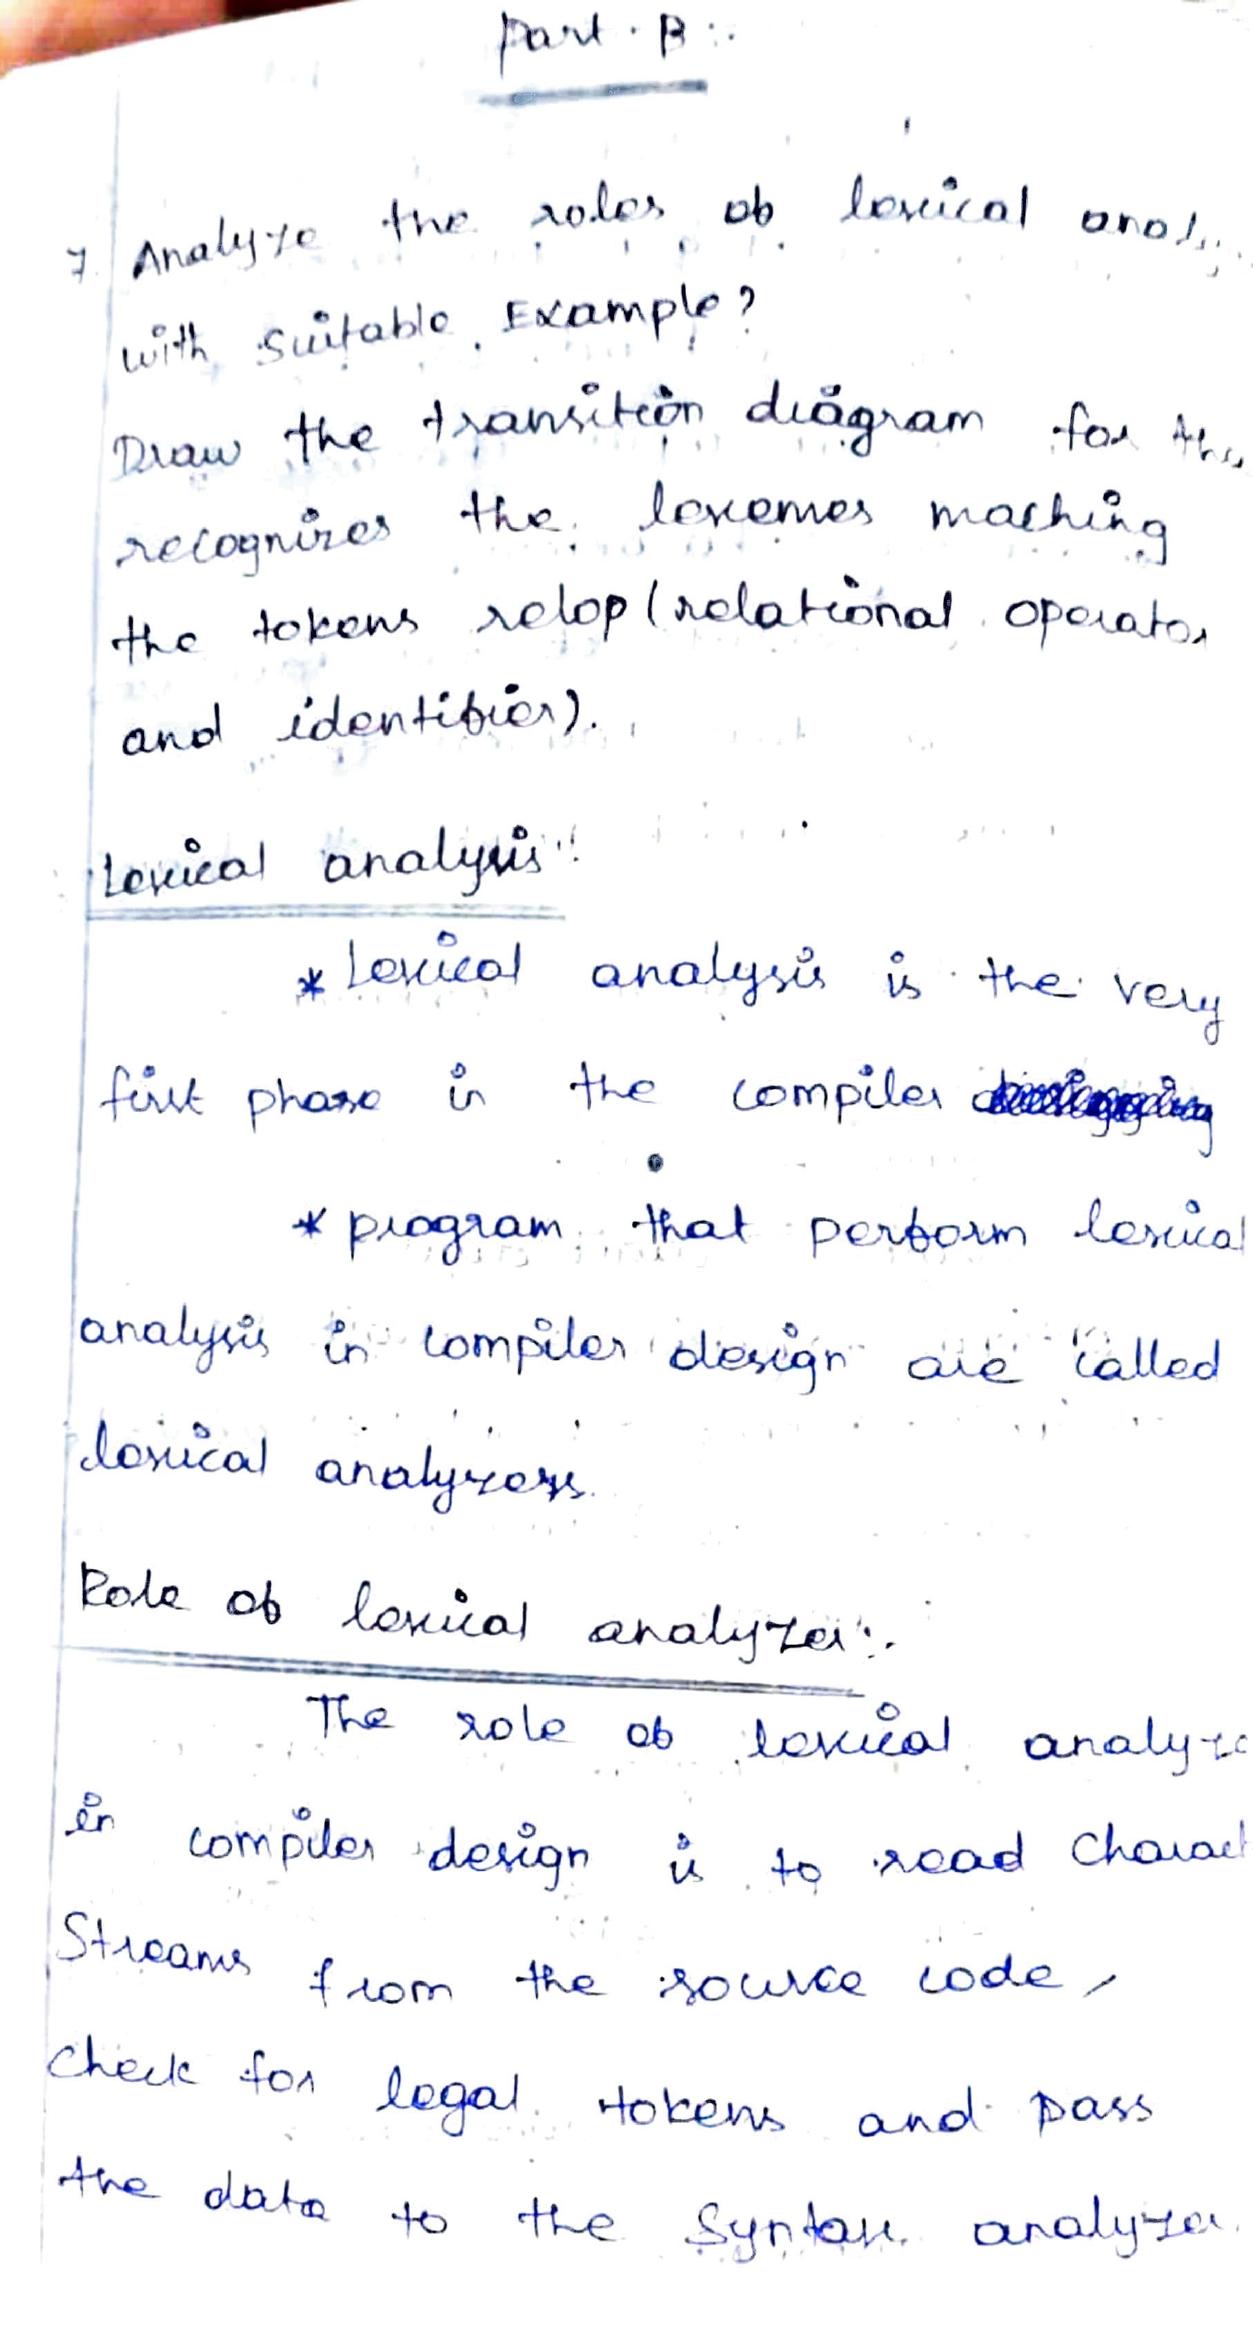 Part. B :.
7. Analyze the roles of lexical
with suitable Example?
Draw the transition diagram for
recognizes the lexemes maching
the tokens relop (relational operator
and identifier).
Lexical analysis:
* Lexical analysis is the very
first phase in the compiler
* program that perform lexical
analysis in compiler design are called
lexical analyzers.
Role of lexical analyzer:.
The role of lexical
in compiler design is to read
Streams from the source code,
Check for legal tokens and pass
the data to the Syntax analyzer.